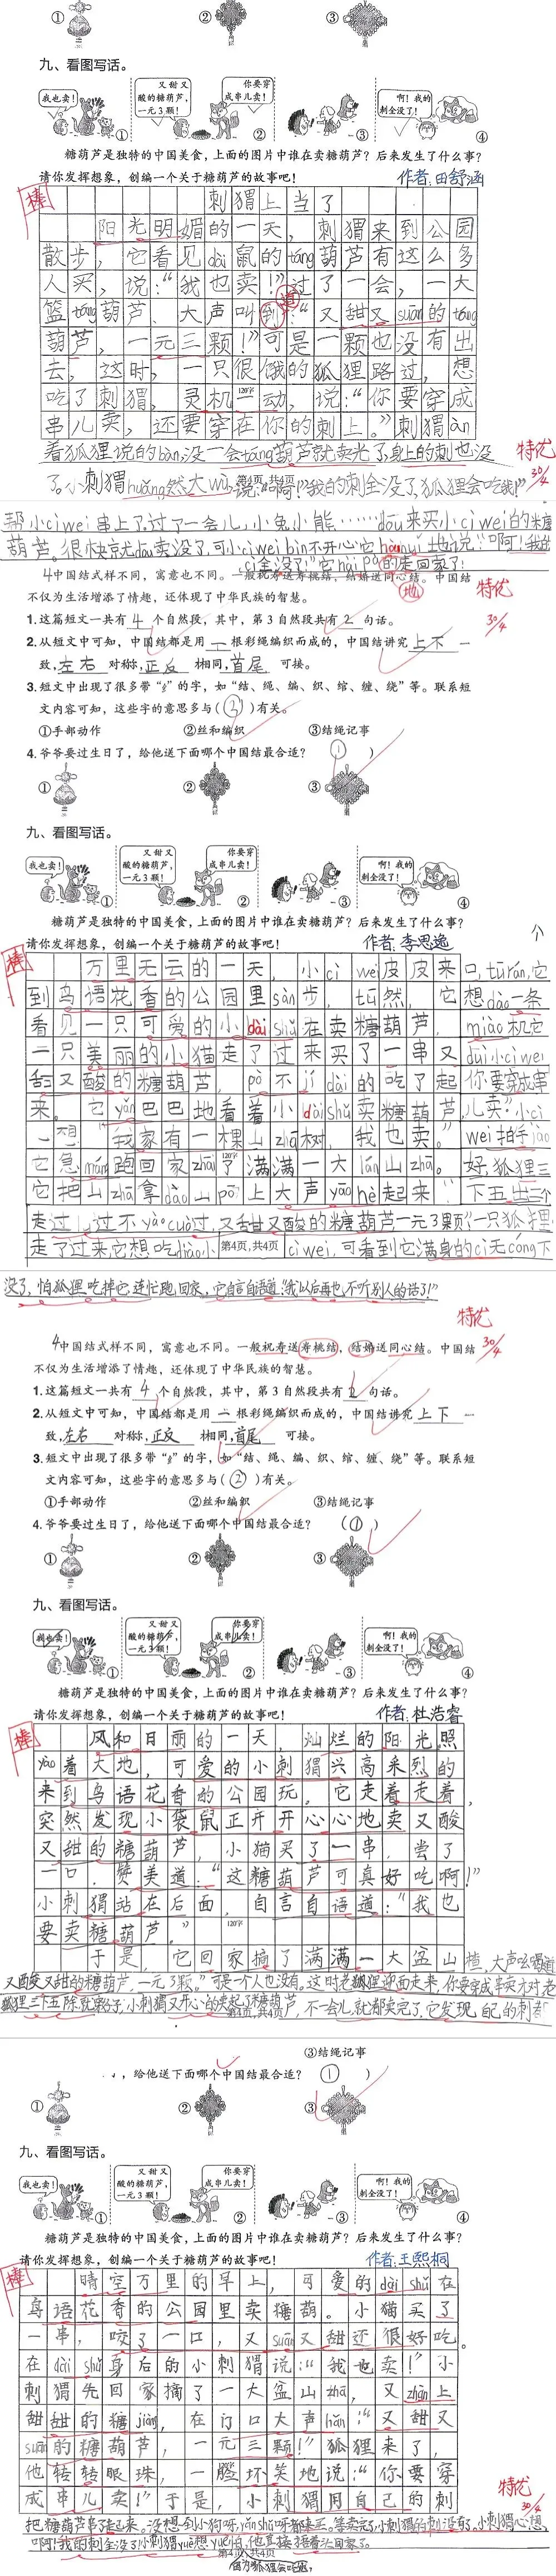 ① ② ③
九、看图写话。
我也卖！ 又甜又酸的糖葫芦，一元3颗！ 你要穿成串儿卖！ 啊！我的刺全没了！
① ② ③ ④
糖葫芦是独特的中国美食，上面的图片中谁在卖糖葫芦？后来发生了什么事？
请你发挥想象，创编一个关于糖葫芦的故事吧！ 作者:田舒涵
棒
刺猬上当了
阳光明媚的一天，刺猬来到公园
散步，它看见dài鼠的táng葫芦有这么多
人买，说：“我也卖！”过了一会，一大
篮táng葫芦，大声叫到道：“又甜又suān的táng
葫芦，一元三颗！”可是一颗也没有出
去，这时，一只很饿的狐狸路过，想
吃了刺猬，灵机一动，说：“你要穿成
120字
串儿卖，还要穿在你的刺上。”刺猬àn
着狐狸说的bàn,没一会táng葫芦就卖光了,身上的刺也没
特优
30/4
了。小刺猬huǎng然大wù,说:“啊!我的刺全没了,狐狸会吃我!”
第4页，共4页
帮小ciwei串上了.过了一会儿,小兔小熊……dōu来买小ciwei的糖
葫芦。很快就dōu卖没了,可小ciwei bìn不开心它hǎn“地说“啊!我的
ci全没了!”它hài pà的走回家了!
4中国结式样不同，寓意也不同。一般祝寿送寿桃结，结婚送同心结。中国结
不仅为生活增添了情趣，还体现了中华民族的智慧。
地
特优
30/4
1.这篇短文一共有 4 个自然段，其中，第3自然段共有 2 句话。
2.从短文中可知，中国结都是用 一 根彩绳编织而成的，中国结讲究 上下 一
致，左右 对称，正反 相同，首尾 可接。
3.短文中出现了很多带“纟”的字，如“结、绳、编、织、绾、缠、绕”等。联系短
文内容可知，这些字的意思多与（②）有关。
①手部动作 ②丝和编织 ③结绳记事
4.爷爷要过生日了，给他送下面哪个中国结最合适？（①）
① ② ③
九、看图写话。
我也卖！ 又甜又酸的糖葫芦，一元3颗！ 你要穿成串儿卖！ 啊！我的刺全没了！
① ② ③ ④
糖葫芦是独特的中国美食，上面的图片中谁在卖糖葫芦？后来发生了什么事？
请你发挥想象，创编一个关于糖葫芦的故事吧！ 作者:李思逸
棒
万里无云的一天，小cì wei皮皮来
到鸟语花香的公园里sàn步，tū然，它
看见一只可爱的小dài shǔ在卖糖葫芦，
一只美丽的小猫走了过来买了一串又
甜又酸的糖葫芦，pò不jí dài的吃了起
来。它yǎn巴巴地看着小dàishǔ卖糖葫芦，
一想“我家有一棵山zhā树，我也卖。”
它急máng跑回家zhāi了满满一大lán山zhā。
120字
它把山zhā拿dào山pō上大声yāo hè起来：“
走过lù过不yào cuò过,又甜又酸的糖葫芦一元3颗”一只狐狸
走了过来它想吃diào小ciwei,可看到它满身的ci无cóng下
第4页，共4页
口,tūrán,它
想dào一条
miào机它
duì小ciwei
你要穿成串
儿卖”小ci
wei拍手jiào
好,狐狸三
下五出二
没了,怕狐狸吃掉它,连忙跑回家,它自言自语道:“我以后再也不听别人的话了!”
特优
30/4
4中国结式样不同，寓意也不同。一般祝寿送寿桃结，结婚送同心结。中国结
不仅为生活增添了情趣，还体现了中华民族的智慧。
1.这篇短文一共有 4 个自然段，其中，第3自然段共有 2 句话。
2.从短文中可知，中国结都是用 一 根彩绳编织而成的，中国结讲究 上下 一
致，左右 对称，正反 相同，首尾 可接。
3.短文中出现了很多带“纟”的字，如“结、绳、编、织、绾、缠、绕”等。联系短
文内容可知，这些字的意思多与（②）有关。
①手部动作 ②丝和编织 ③结绳记事
4.爷爷要过生日了，给他送下面哪个中国结最合适？（①）
① ② ③
九、看图写话。
我也卖！ 又甜又酸的糖葫芦，一元3颗！ 你要穿成串儿卖！ 啊！我的刺全没了！
① ② ③ ④
糖葫芦是独特的中国美食，上面的图片中谁在卖糖葫芦？后来发生了什么事？
请你发挥想象，创编一个关于糖葫芦的故事吧！ 作者:杜浩睿
棒
风和日丽的一天，灿烂的阳光照
yào着大地，可爱的小刺猬兴高采烈的
来到鸟语花香的公园玩。它走着走着，
突然发现小袋鼠正开开心心地卖又酸
又甜的糖葫芦，小猫买了一串，尝了
一口，赞美道：“这糖葫芦可真好吃啊！”
小刺猬站在后面，自言自语道：“我也
要卖糖葫芦。”
120字
于是，它回家摘了满满一大盆山楂，大声吆喝道
又酸又甜的糖葫芦，一元3颗。”可是一个人也没有。这时老狐狸迎面走来，你要穿成串卖才对老
狐狸三下五除就穿好了,小刺猬又开心的卖起了糖葫芦，不一会儿,就都卖完了,它发现自己的刺
第4页，共4页
③结绳记事
，给他送下面哪个中国结最合适？（①）
① ② ③
九、看图写话。
我也卖！ 又甜又酸的糖葫芦，一元3颗！ 你要穿成串儿卖！ 啊！我的刺全没了！
① ② ③ ④
糖葫芦是独特的中国美食，上面的图片中谁在卖糖葫芦？后来发生了什么事？
请你发挥想象，创编一个关于糖葫芦的故事吧！ 作者:王熙桐
棒
晴空万里的早上，可爱的dài shǔ在
鸟语花香的公园里卖糖葫。小猫买了
一串，咬了一口，又suān又甜还很好吃。
在dài shǔ身后的小刺猬说：“我也卖！”小
刺猬先回家摘了一大盆山zhā，又zhān上
甜甜的糖jiāng，在门口大声hǎn：“又甜又
suān的糖葫芦，一元三颗！”狐狸来了，
他转转眼珠，一脸坏笑地说：“你要穿
成串儿卖！”于是，小刺猬用自己的刺
特优
30/4
把糖葫芦串了起来。没想到小狗呀,yǎnshǔ呀都来买。等卖完了,小刺猬的刺没有了。小刺猬心想，
啊!我的刺全没了!小刺猬yuè想yuè怕,他直接捂着头回家了。
第4页，共4页
因为狐狸会吃我，